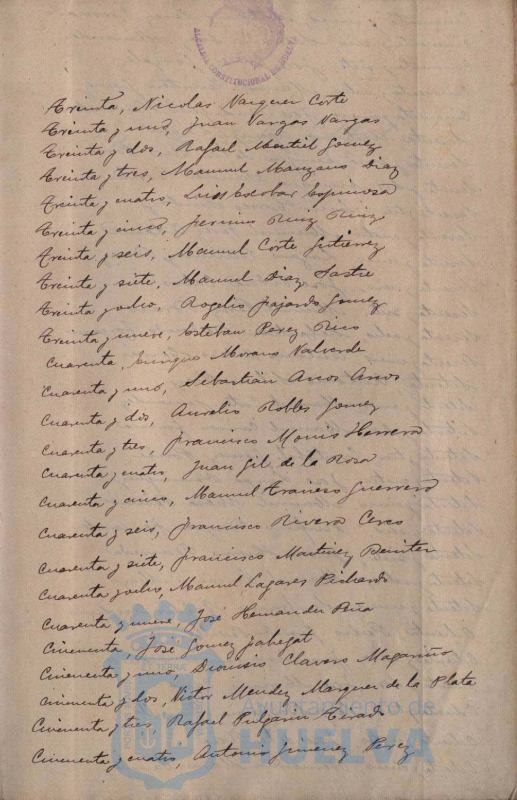 ALCALDIA CONSTITUCIONAL DE HUELVA
Treinta, Nicolas Vazquez Corte
Treinta y uno, Juan Vargas Vargas
Treinta y dos, Rafael Montiel Gomez
Treinta y tres, Manuel Manzano Diaz
Treinta y cuatro, Luis Escobar Espinosa
Treinta y cinco, Jeronimo Ruiz Ruiz
Treinta y seis, Manuel Corte Gutierrez
Treinta y siete, Manuel Diaz Sastre
Treinta y ocho, Rogelio Fajardo Gomez
Treinta y nueve, Esteban Perez Rico
Cuarenta, Enrique Morano Valverde
Cuarenta y uno, Sebastián Arcos Arcos
Cuarenta y dos, Aurelio Robles Gomez
Cuarenta y tres, Francisco Monis Herrera
Cuarenta y cuatro, Juan Gil de la Rosa
Cuarenta y cinco, Manuel Travieso Guerrero
Cuarenta y seis, Francisco Rivera Cerco
Cuarenta y siete, Francisco Martinez Benitez
Cuarenta y ocho, Manuel Lagares Pichardo
Cuarenta y nueve, José Hernandez Peña
Cincuenta, José Gomez
Cincuenta y uno, Dionisio Clavero Magariño
Cincuenta y dos, Victor Mendez Marquez de la Plata
Cincuenta y tres, Rafael Pulgarin Tirado
Cincuenta y cuatro, Antonio Jimenez Perez
Ayuntamiento de
HUELVA